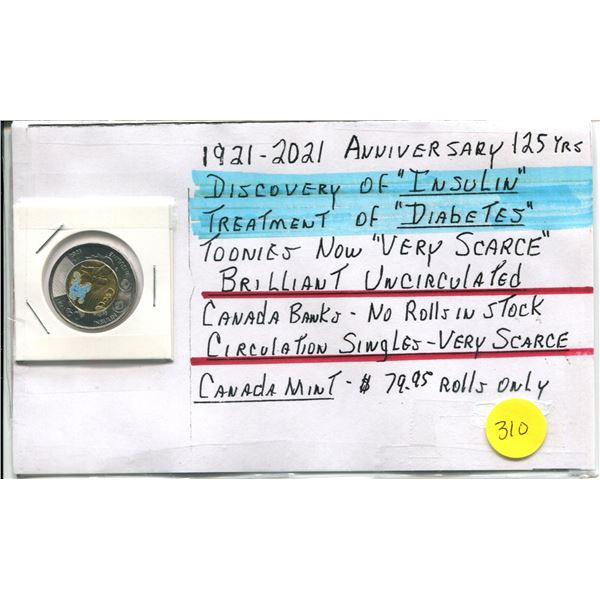 1921-2021 ANNIVERSARY 125 YRS
DISCOVERY OF "INSULIN"
TREATMENT OF "DIABETES"
TOONIES NOW "VERY SCARCE"
BRILLIANT UNCIRCULATED
CANADA BANKS - NO ROLLS IN STOCK
CIRCULATION SINGLES - VERY SCARCE
CANADA MINT - $ 79.95 ROLLS ONLY
310